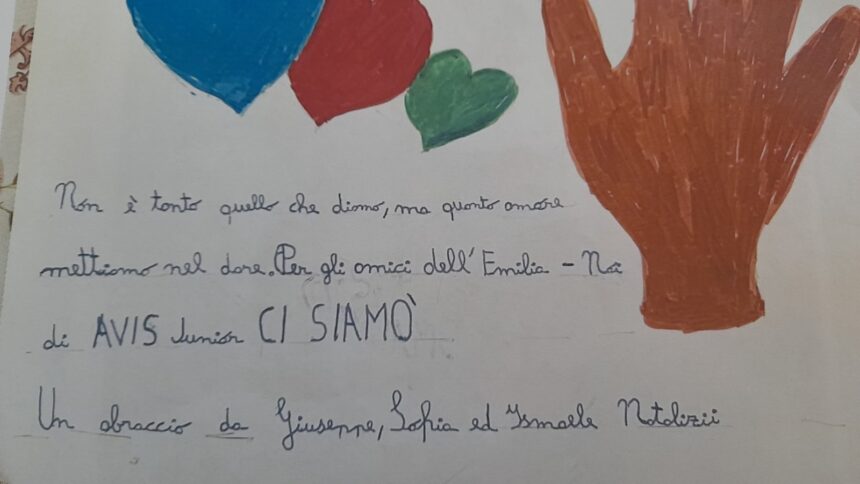 Non è tanto quello che diamo, ma quanto amore
mettiamo nel dare. Per gli amici dell'Emilia - Noi
di AVIS Junior CI SIAMO'
Un abraccio da Giuseppe, Sofia ed Ismaele Natalizii